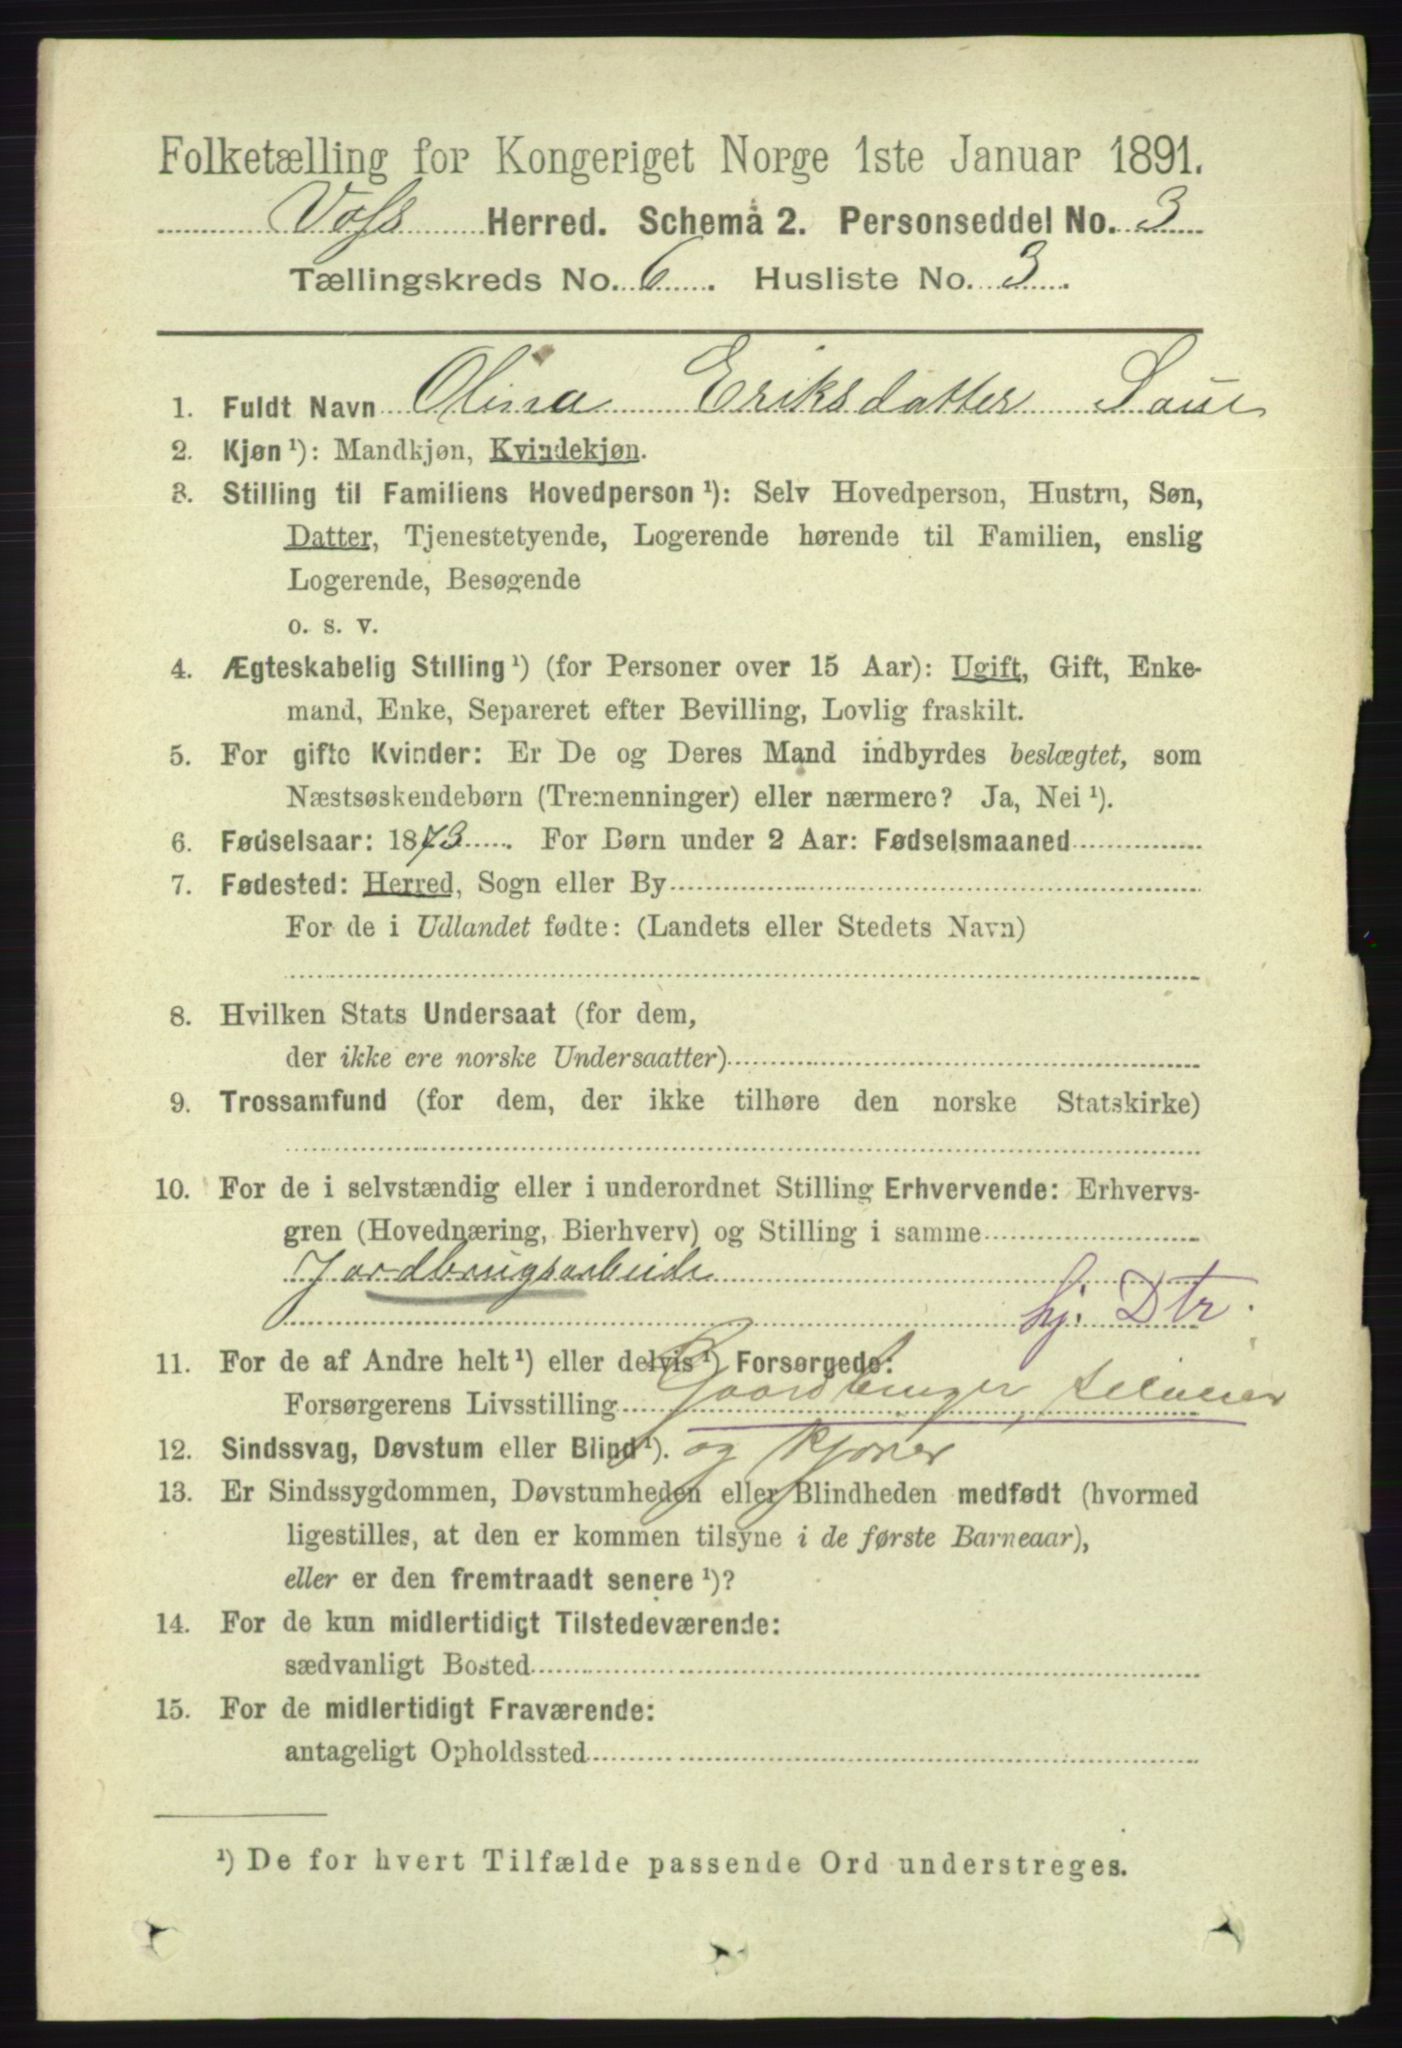 Folketælling for Kongeriget Norge 1ste Januar 1891.
Voss Herred. Schema 2. Personseddel No. 3
Tællingskreds No. 6. Husliste No. 3.
1. Fuldt Navn Olina Eriksdatter Saue
2. Kjøn ¹): Mandkjøn, Kvindekjøn.
3. Stilling til Familiens Hovedperson ¹): Selv Hovedperson, Hustru, Søn,
Datter, Tjenestetyende, Logerende hørende til Familien, enslig
Logerende, Besøgende
o. s. v.
4. Ægteskabelig Stilling ¹) (for Personer over 15 Aar): Ugift, Gift, Enke-
mand, Enke, Separeret efter Bevilling, Lovlig fraskilt.
5. For gifte Kvinder: Er De og Deres Mand indbyrdes beslægtet, som
Næstsøskendebørn (Tremenninger) eller nærmere? Ja, Nei ¹).
6. Fødselsaar: 1873. For Børn under 2 Aar: Fødselsmaaned
7. Fødested: Herred, Sogn eller By
For de i Udlandet fødte: (Landets eller Stedets Navn)
8. Hvilken Stats Undersaat (for dem,
der ikke ere norske Undersaatter)
9. Trossamfund (for dem, der ikke tilhøre den norske Statskirke)
10. For de i selvstændig eller i underordnet Stilling Erhvervende: Erhvervs-
gren (Hovednæring, Bierhverv) og Stilling i samme
Jordbrugsarbeide
hj. Dtr.
11. For de af Andre helt ¹) eller delvis ¹) Forsørgede:
Forsørgerens Livsstilling Gaardbruger, Selveier
12. Sindssvag, Døvstum eller Blind ¹). og
13. Er Sindssygdommen, Døvstumheden eller Blindheden medfødt (hvormed
ligestilles, at den er kommen tilsyne i de første Barneaar),
eller er den fremtraadt senere ¹)?
14. For de kun midlertidigt Tilstedeværende:
sædvanligt Bosted
15. For de midlertidigt Fraværende:
antageligt Opholdssted
¹) De for hvert Tilfælde passende Ord understreges.